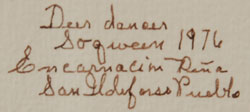 Deer dancer
Soqween 1976
Encarnación Peña
San Ildefonso Pueblo